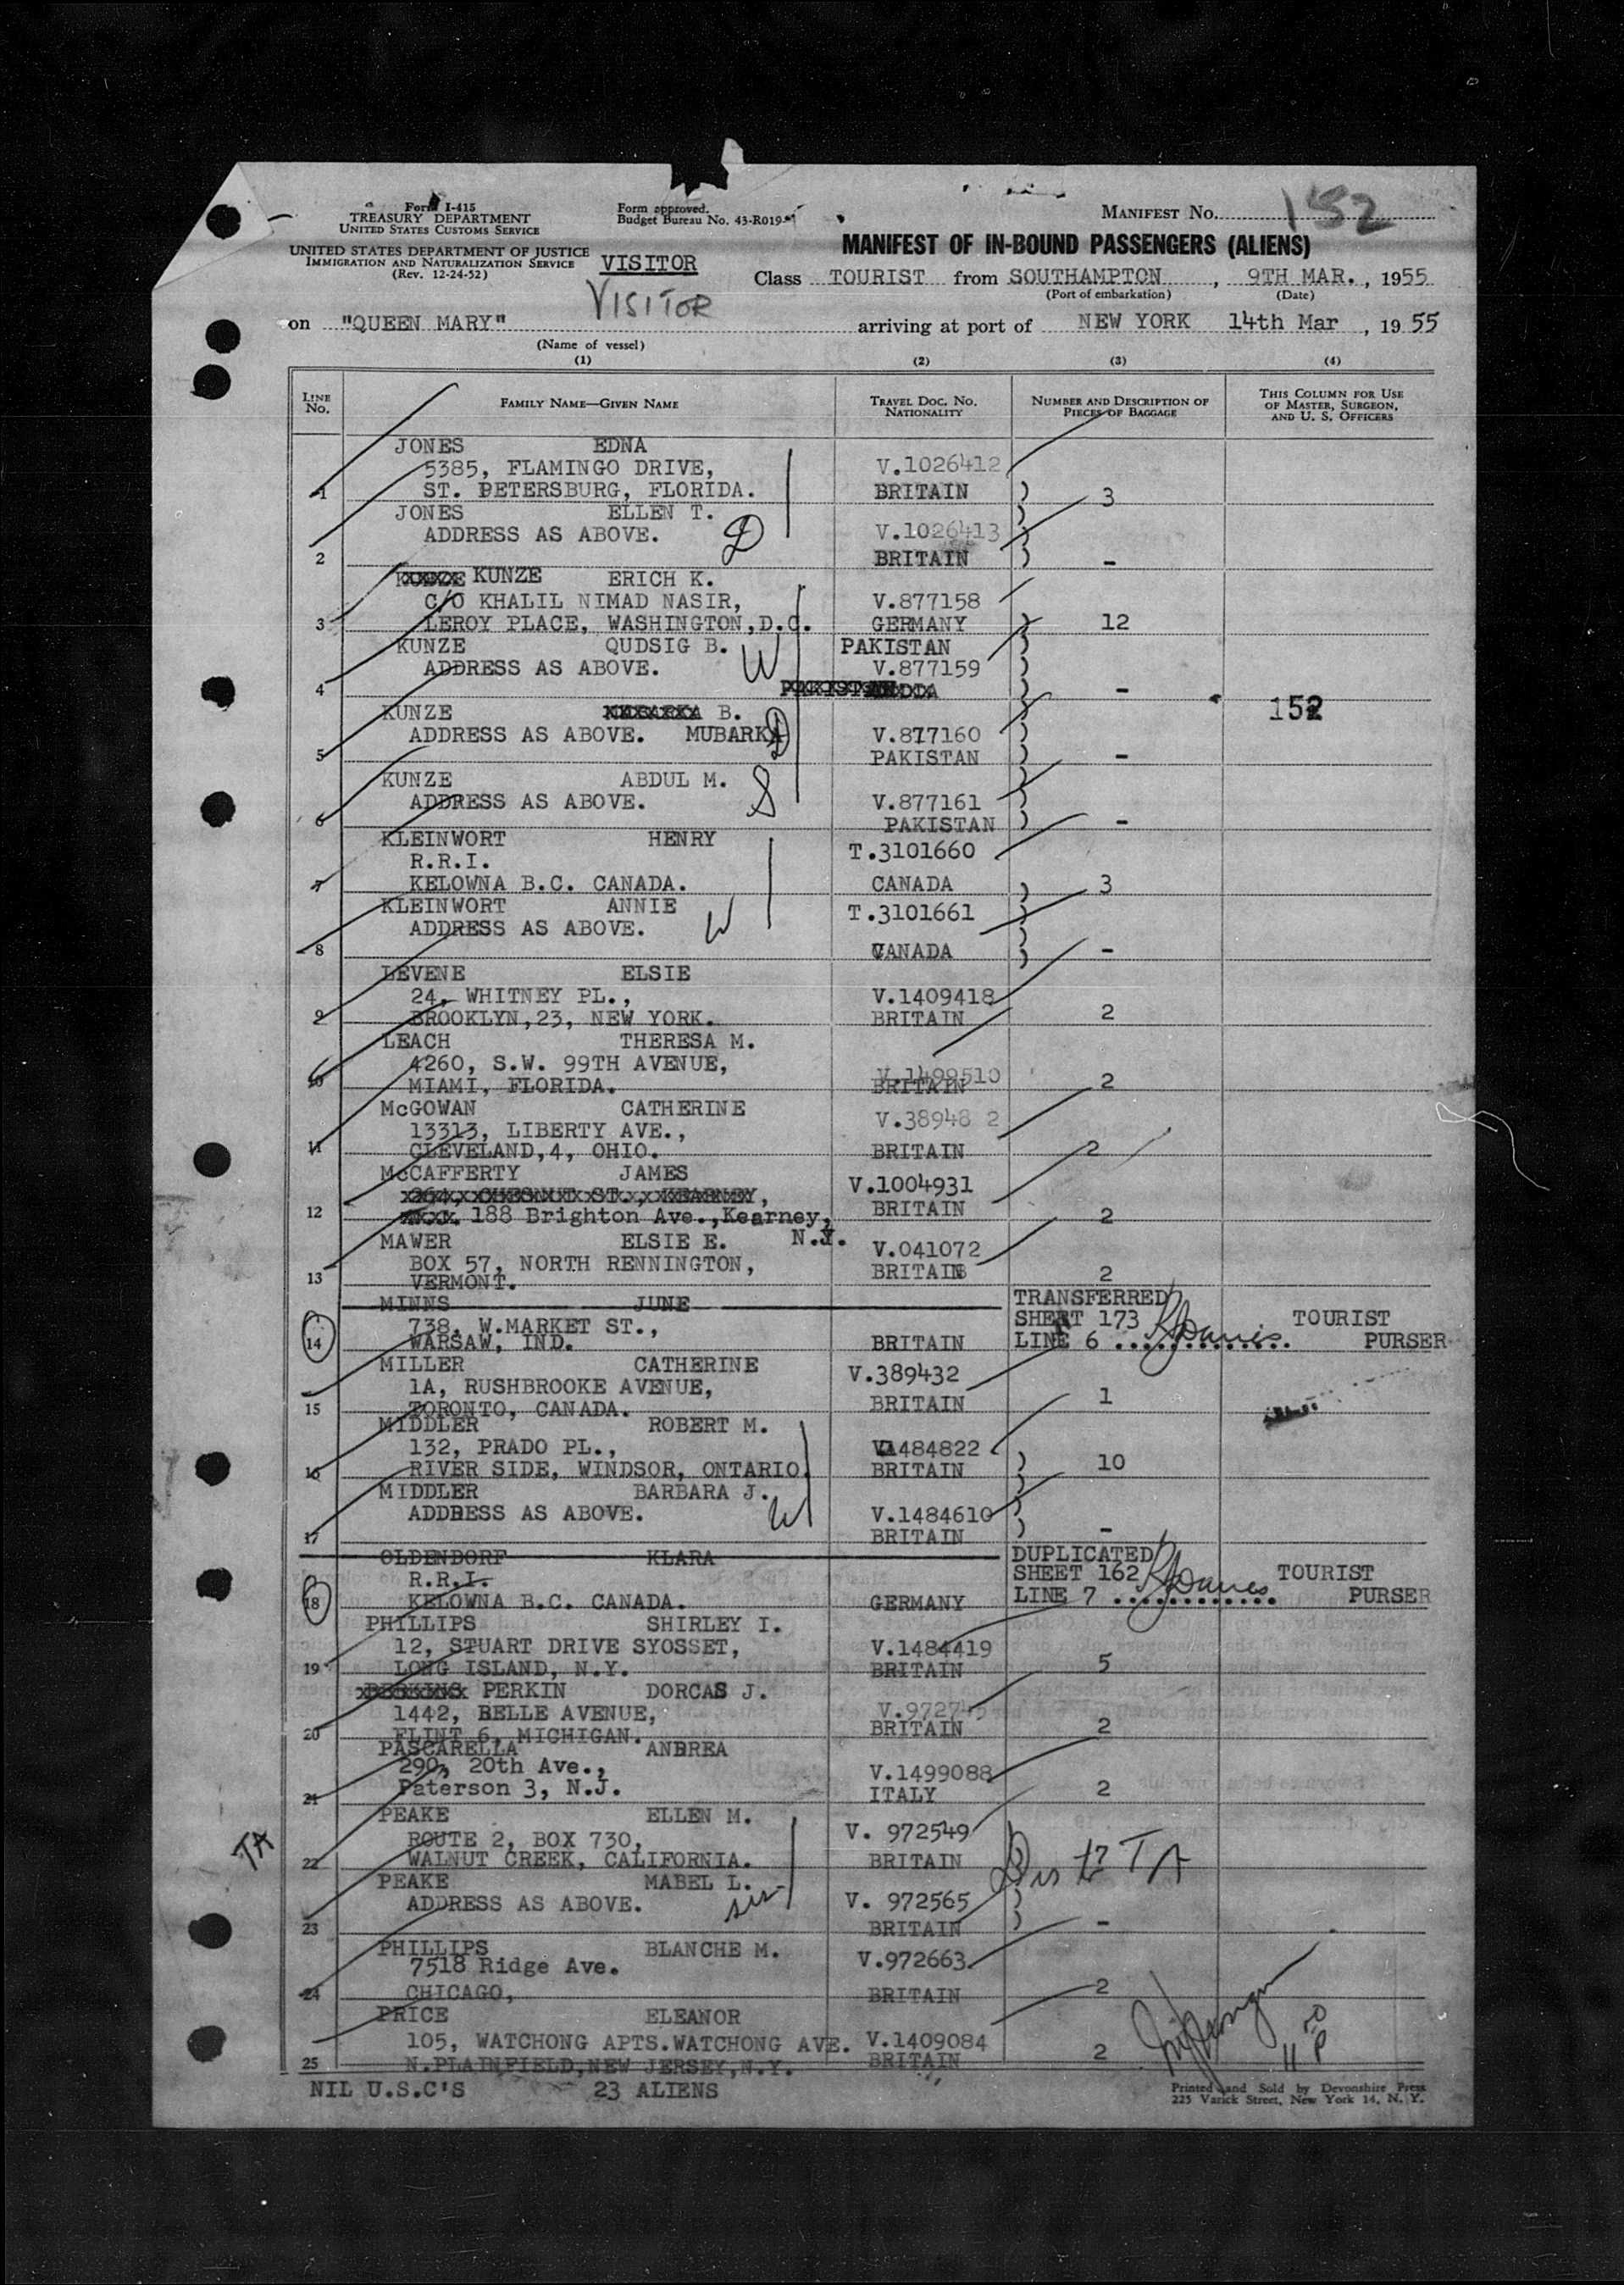 Form I-415
TREASURY DEPARTMENT
UNITED STATES CUSTOMS SERVICE
UNITED STATES DEPARTMENT OF JUSTICE
IMMIGRATION AND NATURALIZATION SERVICE
(Rev. 12-24-52)
Form approved.
Budget Bureau No. 43-R019
VISITOR
VISITOR
MANIFEST No. 152
MANIFEST OF IN-BOUND PASSENGERS (ALIENS)
Class TOURIST from SOUTHAMPTON, 9TH MAR., 1955
(Port of embarkation) (Date)
on "QUEEN MARY" arriving at port of NEW YORK 14th Mar, 1955
(Name of vessel)
(1) (2) (3) (4)
LINE No. FAMILY NAME—GIVEN NAME TRAVEL DOC. No. NATIONALITY NUMBER AND DESCRIPTION OF PIECES OF BAGGAGE THIS COLUMN FOR USE OF MASTER, SURGEON, AND U. S. OFFICERS
JONES EDNA
5385, FLAMINGO DRIVE, V.1026412
1 ST. PETERSBURG, FLORIDA. BRITAIN ) 3
JONES ELLEN T.
ADDRESS AS ABOVE. D V.1026413
2 BRITAIN ) -
KUNZE ERICH K.
C/O KHALIL NIMAD NASIR, V.877158
3 LEROY PLACE, WASHINGTON,D.C. GERMANY ) 12
KUNZE QUDSIG B. W PAKISTAN
ADDRESS AS ABOVE. V.877159
4 ) -
152
KUNZE B.
ADDRESS AS ABOVE. MUBARKA D V.877160
5 PAKISTAN ) -
KUNZE ABDUL M. S
ADDRESS AS ABOVE. V.877161
6 PAKISTAN ) -
KLEINWORT HENRY T.3101660
R.R.I.
7 KELOWNA B.C. CANADA. CANADA ) 3
KLEINWORT ANNIE W T.3101661
ADDRESS AS ABOVE.
8 CANADA ) -
LEVENE ELSIE
24, WHITNEY PL., V.1409418
9 BROOKLYN,23, NEW YORK. BRITAIN 2
LEACH THERESA M.
4260, S.W. 99TH AVENUE, V.1499510
10 MIAMI, FLORIDA. BRITAIN 2
McGOWAN CATHERINE V.38948 2
13313, LIBERTY AVE.,
11 CLEVELAND,4, OHIO. BRITAIN 2
McCAFFERTY JAMES V.1004931
264, CHESNUT ST., KEARNEY,
12 188 Brighton Ave.,Kearney, N.J. BRITAIN 2
MAWER ELSIE E. V.041072
BOX 57, NORTH RENNINGTON, BRITAIN
13 VERMONT. 2
MINNS JUNE TRANSFERRED
738, W.MARKET ST., SHEET 173 TOURIST
14 WARSAW, IND. BRITAIN LINE 6 ............. PURSER
MILLER CATHERINE V.389432
1A, RUSHBROOKE AVENUE,
15 TORONTO, CANADA. BRITAIN 1
MIDDLER ROBERT M.
132, PRADO PL., V1484822
16 RIVER SIDE, WINDSOR, ONTARIO. BRITAIN ) 10
MIDDLER BARBARA J. W
ADDRESS AS ABOVE. V.1484610
17 BRITAIN ) -
OLDENDORF KLARA DUPLICATED
R.R.I. SHEET 162 TOURIST
18 KELOWNA B.C. CANADA. GERMANY LINE 7 ............ PURSER
PHILLIPS SHIRLEY I.
12, STUART DRIVE SYOSSET, V.1484419
19 LONG ISLAND, N.Y. BRITAIN 5
PERKIN DORCAS J.
1442, BELLE AVENUE, V.972745
20 FLINT 6, MICHIGAN. BRITAIN 2
PASCARELLA ANDREA
290, 20th Ave., V.1499088
21 Paterson 3, N.J. ITALY 2
PEAKE ELLEN M. V. 972549
TA ROUTE 2, BOX 730,
22 WALNUT CREEK, CALIFORNIA. BRITAIN ) 12 TA
PEAKE MABEL L. sis
ADDRESS AS ABOVE. V. 972565
23 BRITAIN ) -
PHILLIPS BLANCHE M. V.972663
7518 Ridge Ave.
24 CHICAGO, BRITAIN 2
PRICE ELEANOR
105, WATCHONG APTS.WATCHONG AVE. V.1409084
25 N.PLAINFIELD,NEW JERSEY,N.Y. BRITAIN 2
NIL U.S.C'S 23 ALIENS
Printed and Sold by Devonshire Press
225 Varick Street, New York 14, N. Y.